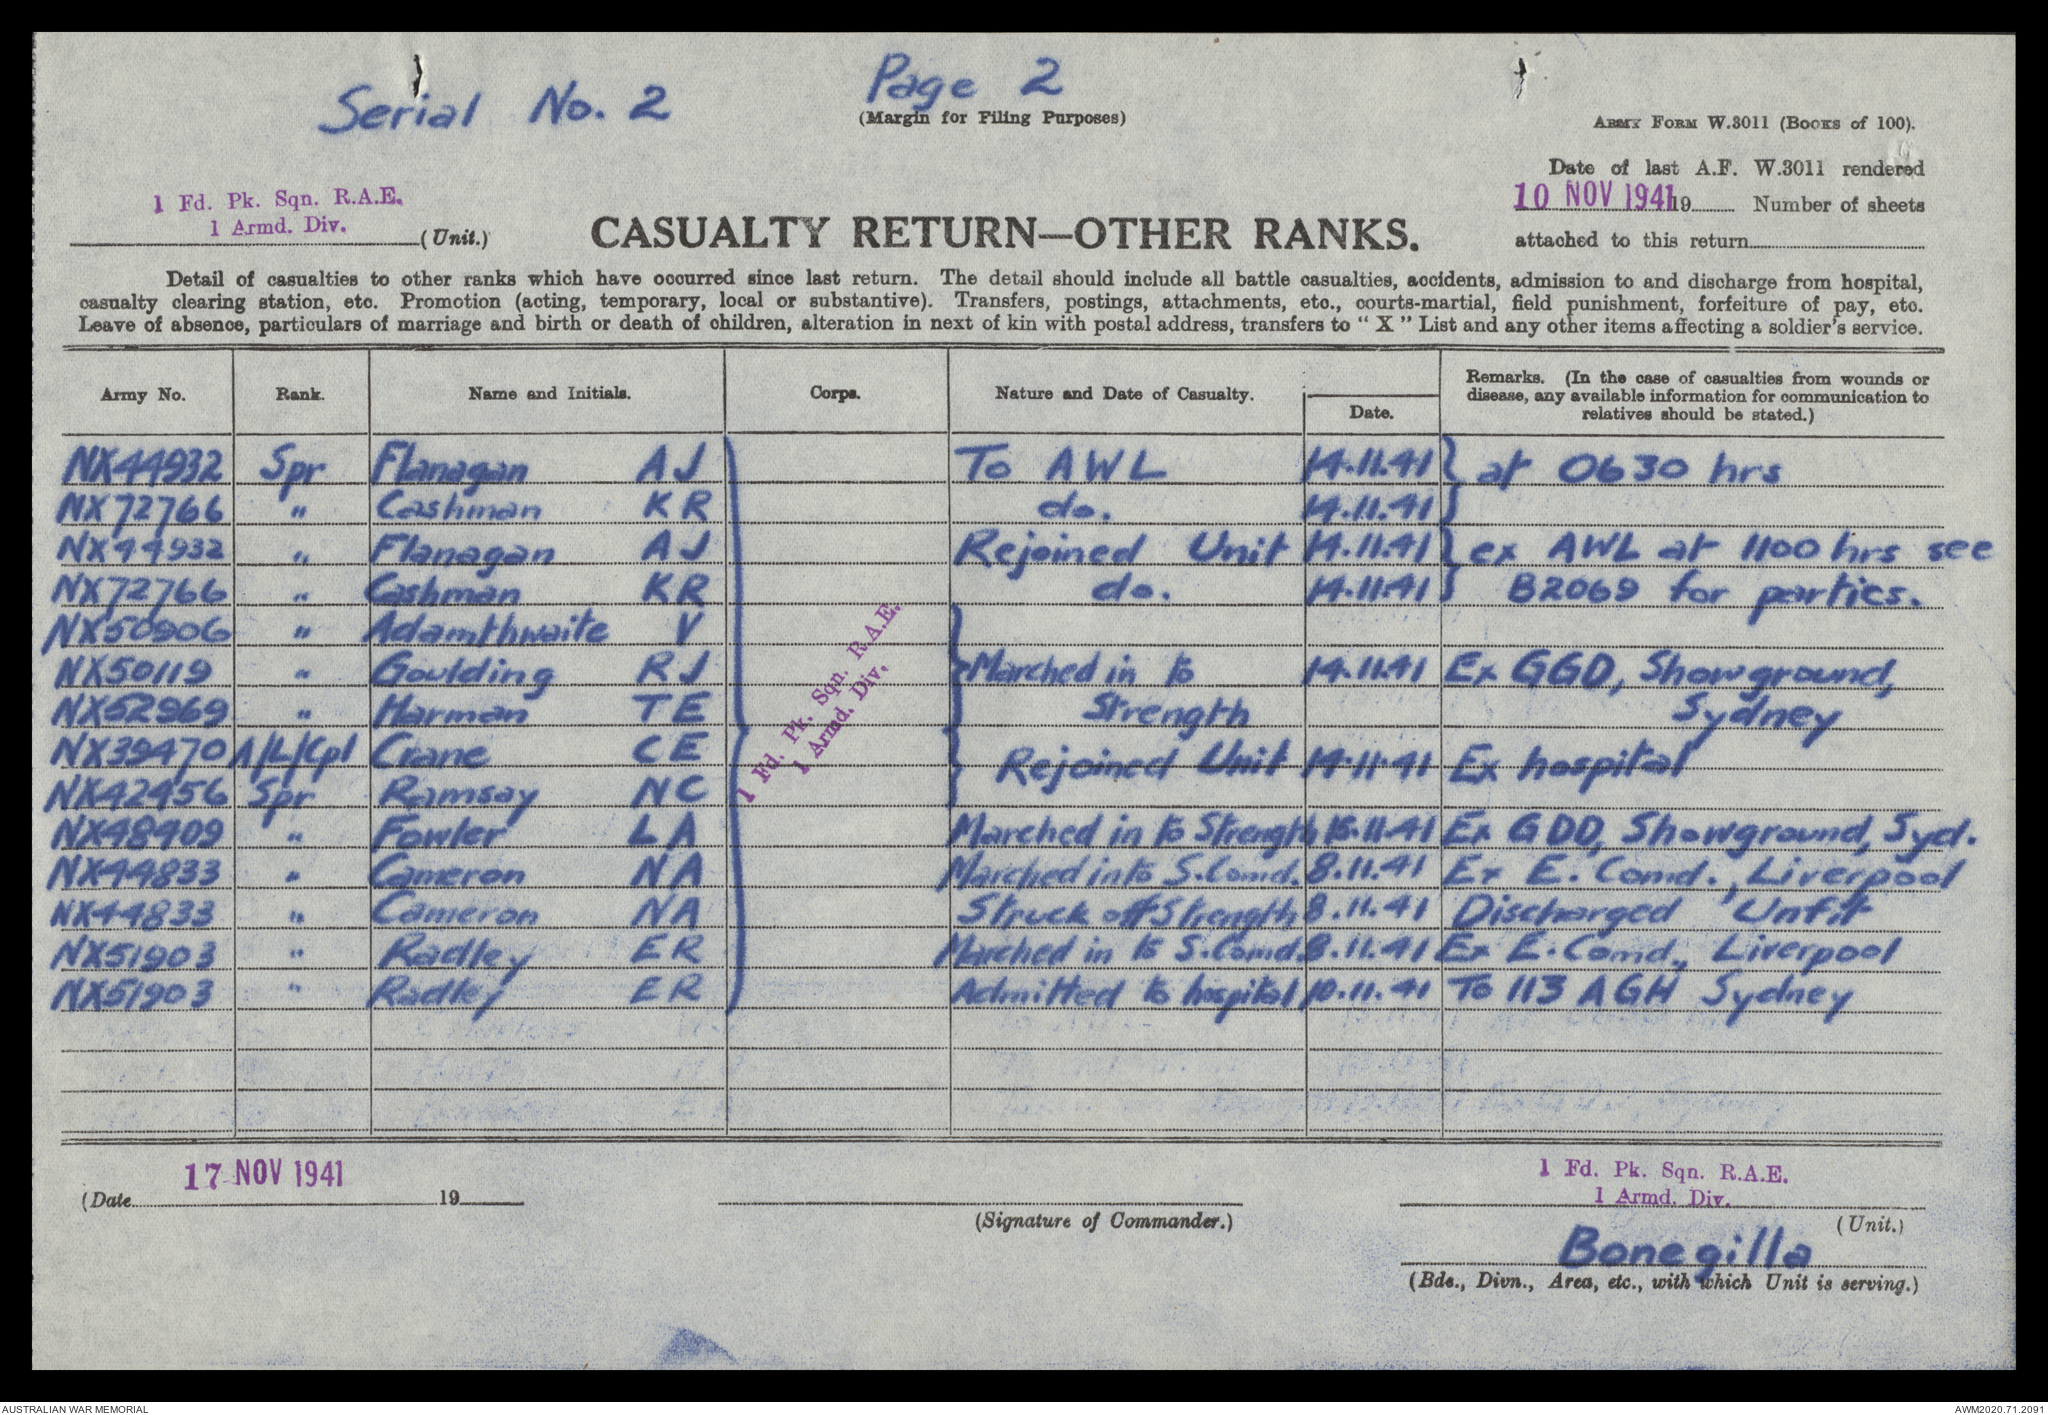 Serial No. 2
Page 2
(Margin for Filing Purposes)
ARMY FORM W.3011 (BOOKS of 100).
Date of last A.F. W.3011 rendered
10 NOV 1941 19 Number of sheets
attached to this return
1 Fd. Pk. Sqn. R.A.E.
1 Armd. Div. (Unit.)
CASUALTY RETURN—OTHER RANKS.
Detail of casualties to other ranks which have occurred since last return. The detail should include all battle casualties, accidents, admission to and discharge from hospital,
casualty clearing station, etc. Promotion (acting, temporary, local or substantive). Transfers, postings, attachments, etc., courts-martial, field punishment, forfeiture of pay, etc.
Leave of absence, particulars of marriage and birth or death of children, alteration in next of kin with postal address, transfers to "X" List and any other items affecting a soldier's service.
Army No. Rank. Name and Initials. Corps. Nature and Date of Casualty. Date. Remarks. (In the case of casualties from wounds or
disease, any available information for communication to
relatives should be stated.)
NX44932 Spr Flanagan A J To A W L 14.11.41 } at 0630 hrs
NX72766 " Cashman K R do. 14.11.41 }
NX44932 " Flanagan A J Rejoined Unit 14.11.41 } ex AWL at 1100 hrs see
NX72766 " Cashman K R do. 14.11.41 } B2069 for partics.
NX50906 " Adamthwaite V
NX50119 " Goulding R J } Marched in to 14.11.41 Ex GGD, Showground,
NX52969 " Harman T E Strength Sydney
NX39470 A/L/Cpl Crane C E } Rejoined Unit 14.11.41 Ex hospital
NX42456 Spr Ramsay N C
NX48409 " Fowler L A Marched in to Strength 15.11.41 Ex GDD, Showground, Syd.
NX44833 " Cameron N A Marched in to S.Comd. 8.11.41 Ex E. Comd., Liverpool
NX44833 " Cameron N A Struck off Strength 8.11.41 Discharged 'Unfit
NX51903 " Radley E R Marched in to S.Comd. 8.11.41 Ex E.Comd., Liverpool
NX51903 " Radley E R Admitted to hospital 10.11.41 To 113 AGH Sydney
1 Fd. Pk. Sqn. R.A.E.
1 Armd. Div.
(Date 17 NOV 1941 19
(Signature of Commander.)
1 Fd. Pk. Sqn. R.A.E.
1 Armd. Div.
(Unit.)
Bonegilla
(Bde., Divn., Area, etc., with which Unit is serving.)
AUSTRALIAN WAR MEMORIAL
AWM2020.71.2091